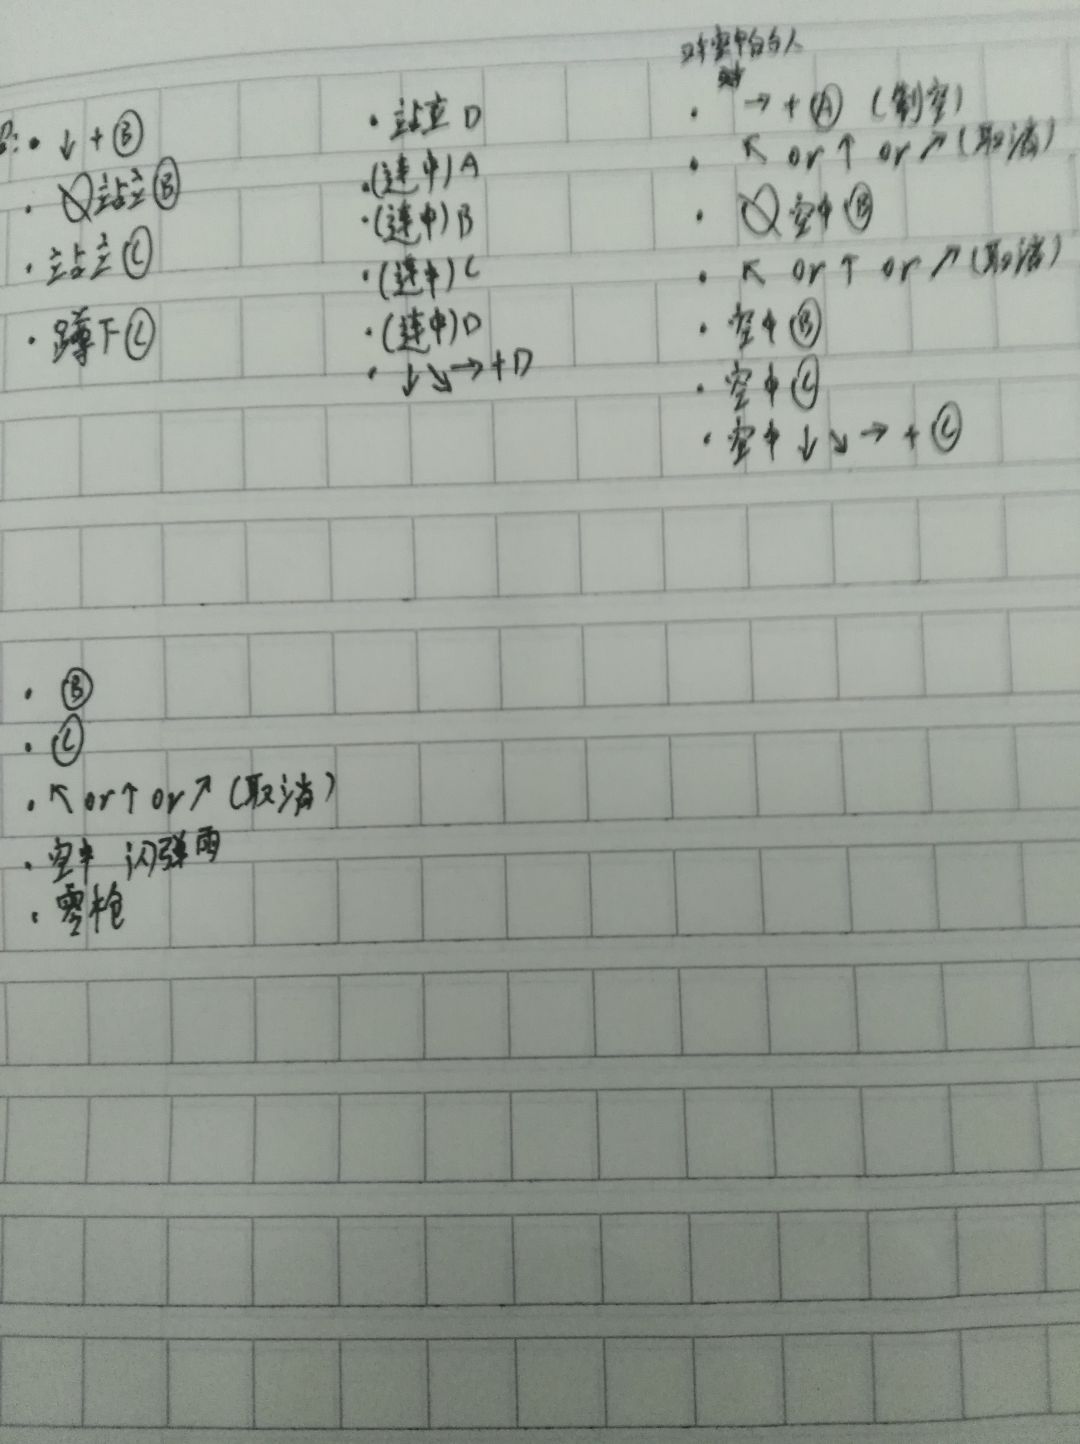 · ↓ + Ⓑ
· 站立Ⓑ
· 站立Ⓒ
· 蹲下Ⓒ
· 站立 D
·(连中)A
·(连中)B
·(连中)C
·(连中)D
· ↓↘→+D
对空中的人
· →+Ⓐ (制空)
· ↖ or ↑ or ↗ (取消)
· 空中Ⓑ
· ↖ or ↑ or ↗ (取消)
· 空中Ⓑ
· 空中Ⓒ
· 空中 ↓↘→+Ⓒ
· Ⓑ
· Ⓒ
· ↖ or ↑ or ↗ (取消)
· 空中 闪弹雨
· 零枪